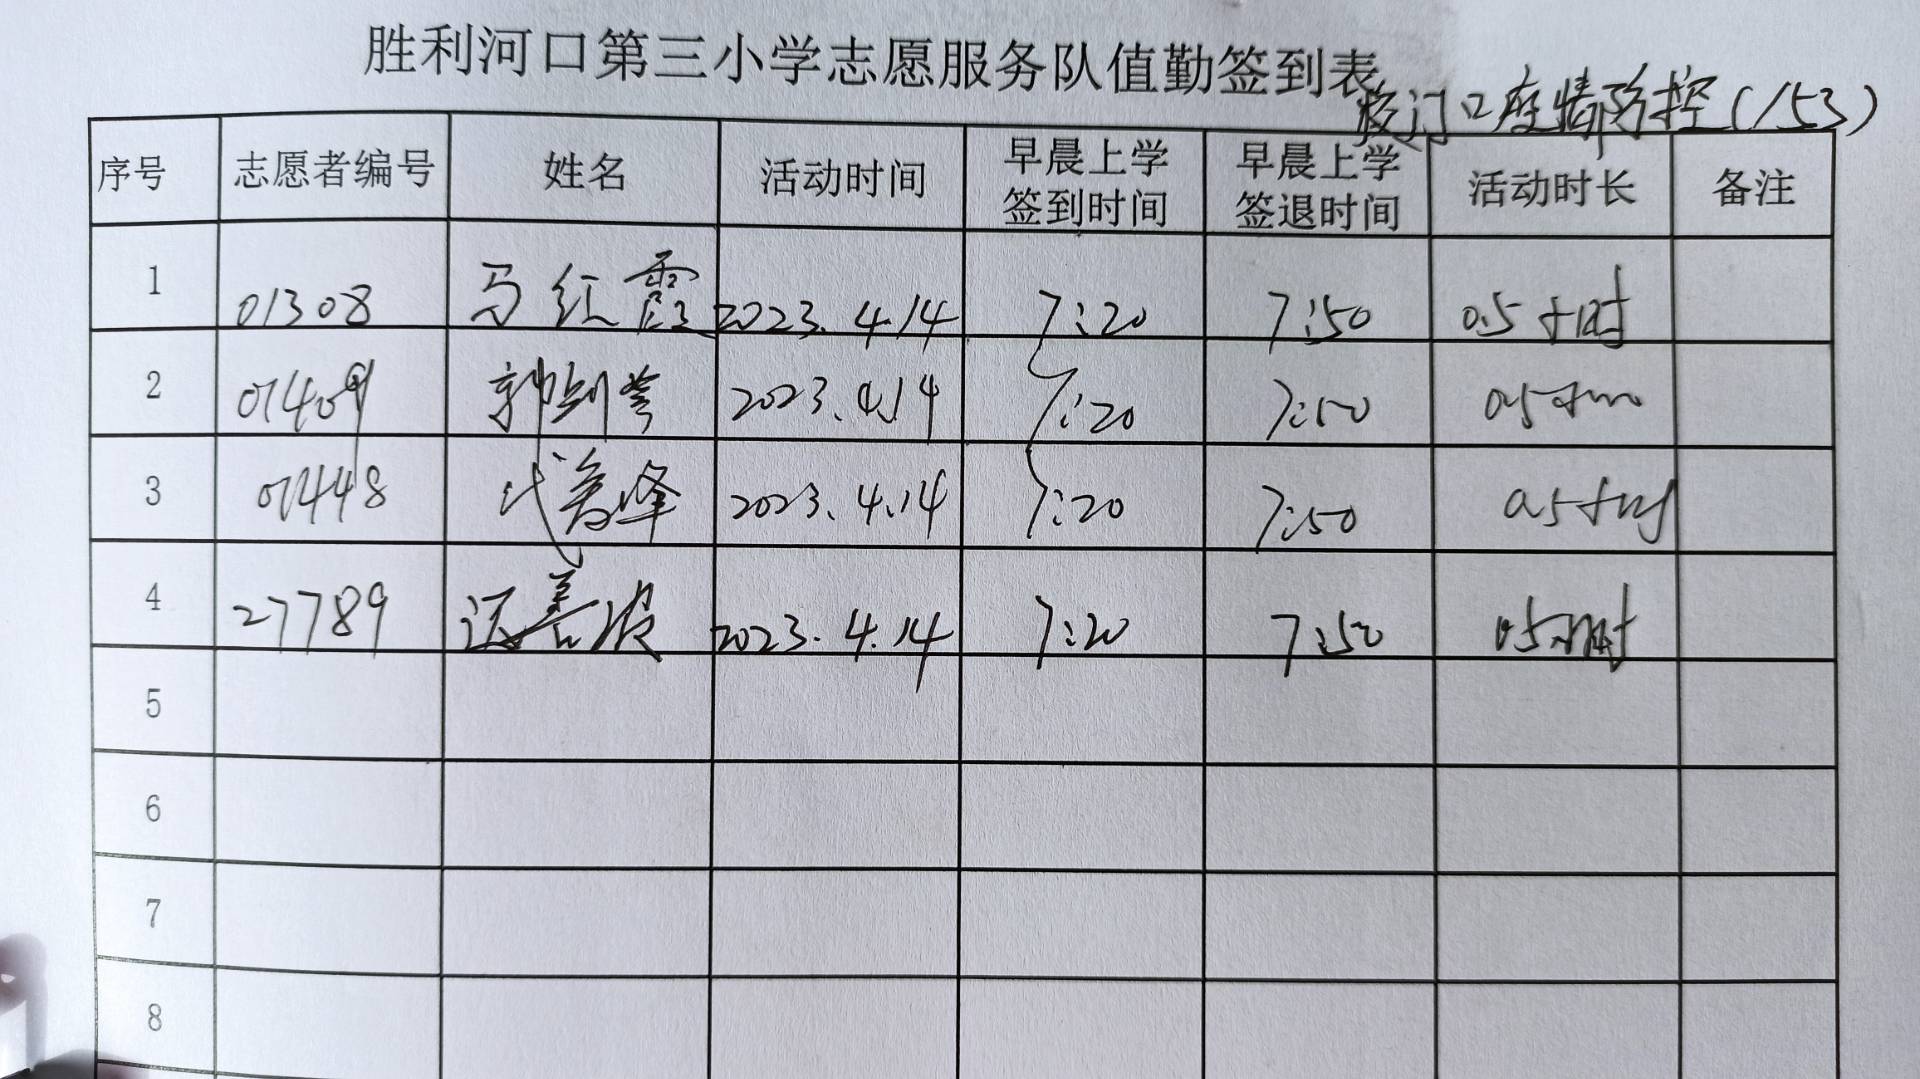 胜利河口第三小学志愿服务队值勤签到表
校门口疫情防控(153)
序号 志愿者编号 姓名 活动时间 早晨上学签到时间 早晨上学签退时间 活动时长 备注
1 01308 马红霞 2023.4.14 7:20 7:50 0.5小时
2 01409 2023.4.14 7:20 7:50 0.5小时
3 01448 代峰 2023.4.14 7:20 7:50 0.5小时
4 27789 善波 2023.4.14 7:20 7:50 0.5小时
5
6
7
8